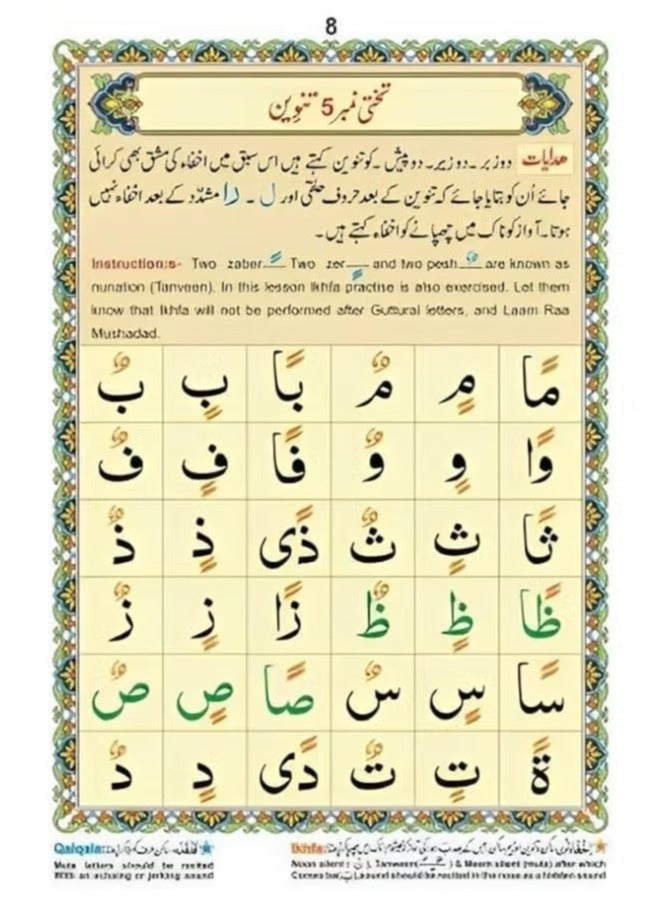 8
تختی نمبر 5 تنوین
ھدایات دو زبر۔ دو زیر۔ دو پیش۔ کو تنوین کہتے ہیں اس سبق میں اخفاء کی مشق بھی کرائی
جائے اُن کو بتایا جائے کہ تنوین کے بعد حروف حلقی اور ل۔ را مشدّد کے بعد اخفاء نہیں
ہوتا۔ آواز کو ناک میں چھپانے کو اخفاء کہتے ہیں۔
Instructions- Two zaber Two zer and two pesh are known as
nunation (Tanveen). In this lesson Ikhfa practise is also exercised. Let them
know that Ikhfa will not be performed after Guttural letters, and Laam Raa
Mushadad.
مًا مٍ مٌ بًا بٍ بٌ
وًا وٍ وٌ فًا فٍ فٌ
ثًا ثٍ ثٌ ذًى ذٍ ذٌ
ظًا ظٍ ظٌ زًا زٍ زٌ
سًا سٍ سٌ صًا صٍ صٌ
ةً تٍ تٌ دًى دٍ دٌ
Ikhfa:
Noon silent (نْ), Tanween & Meem silent (mute) after which
Comes ba(ب) sound should be recited in the nose as a hidden sound
Qalqala:
Mute letters should be recited
with an echoing or jerking sound